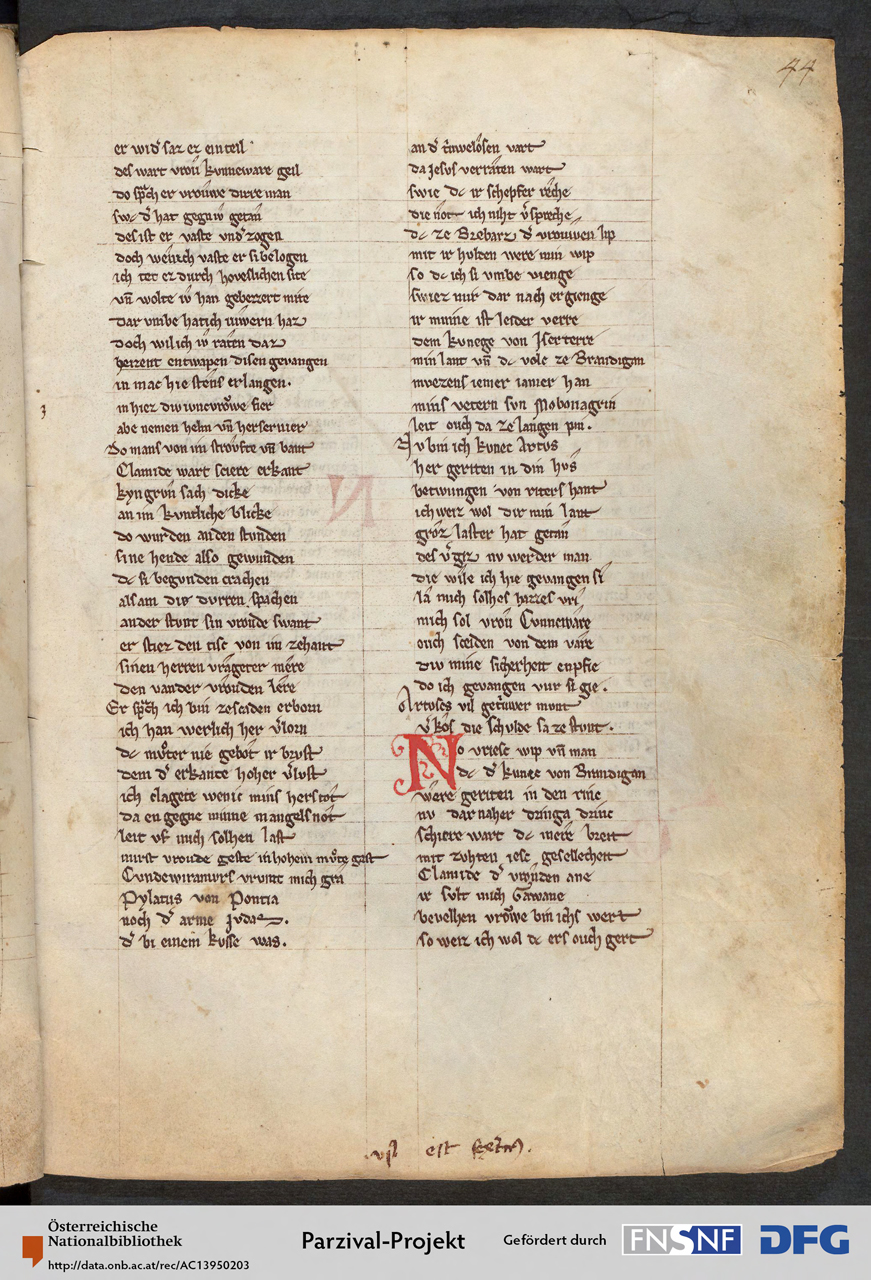 44
er wid͛ saz ez ein teil
des wart vroͮ kvnneware geil
do spͣch er vrouwe dirre man
swc d͛ hat gegn iv getan
des ist er vaste vnd͛ zogen
doch wen ich vaste er si belogen
ich tet ez durch hoveslichen site
vn̄ wolte iv han gebezzert mite
Dar vmbe hat ich iuwern haz
Doch wil ich iv raten daz
heizent entwapen disen gevangen
in mac hie stens erlangen.
in hiez div iuncvroͮwe fier
abe nemen helm vn̄ herseruier
Do mans von im strovfte vn̄ bant
Clamide wart sciere erkant
kyngrun sach dicke
an im kvntliche blicke
do wurden an den stunden
sine hende also gewunden
dc si begunden crachen
alsam die durren spachen
ander stvnt sin vroude swant
er stiez den tisc von im zehant
sinen herren vrageter mere
den vander vrouden lere
Er spͣch ich bin zescaden erborn
ich han werlich her v͛lorn
dc mvͦter nie gebot ir brust
dem d͛ erkante hoher v͛lust
ich clagete wenic mins hers tot
da en gegne minne mangels not
leit vf mich solhen last
mirst vroude geste in hohem mvͦte gast
Cundewiramurs vrumt mich gra
Pylatus von Pontia
noch d͛ arme Ivdas.
d͛ bi einem kusse was.
an d͛ triwelosen vart
da Jesus verraten wart
swie dc ir schepfer reche
die not ich niht v͛spreche
dc ze Brebarz d͛ vrouwen lip
mit ir hulden were min wip
so dc ich si vmbe vienge
swiez mir dar nach ergienge
ir minne ist leider verre
dem kunege von Iserterre
min lant vn̄ dc volc ze Brandigan
mvezens iemer iamer han
mins vetern sun Mobonagrin
leit ouch da ze langen pin.
Nv bin ich kunec Artus
her geriten in din hus
betwungen von riters hant
ich weiz wol dir min lant
groz laster hat getan
des v͛giz nv werder man
die wile ich hie gevangen si
la mich solhes hazzes vri
mich sol vroͮ Cunneware
ouch sceiden von dem vare
div mine sicherheit enpfie
do ich gevangen vur si gie.
Artuses vil getriwer munt
v͛kos die schulde sa ze stunt.
No vriesc wip vn̄ man
dc d͛ kunec von Brandigan
were geriten in den rinc
nv dar naher dringa drinc
schiere wart dc mere breit
mit zuhten iesc gesellecheit
Clamide d͛ vrouden ane
ir sult mich Gawane
bevelhen vroͮwe bin ichs wert
so weiz ich wol dc ers ouch gert
est
Österreichische
Nationalbibliothek
http://data.onb.ac.at/rec/AC13950203
Parzival-Projekt
Gefördert durch
FNSNF
DFG